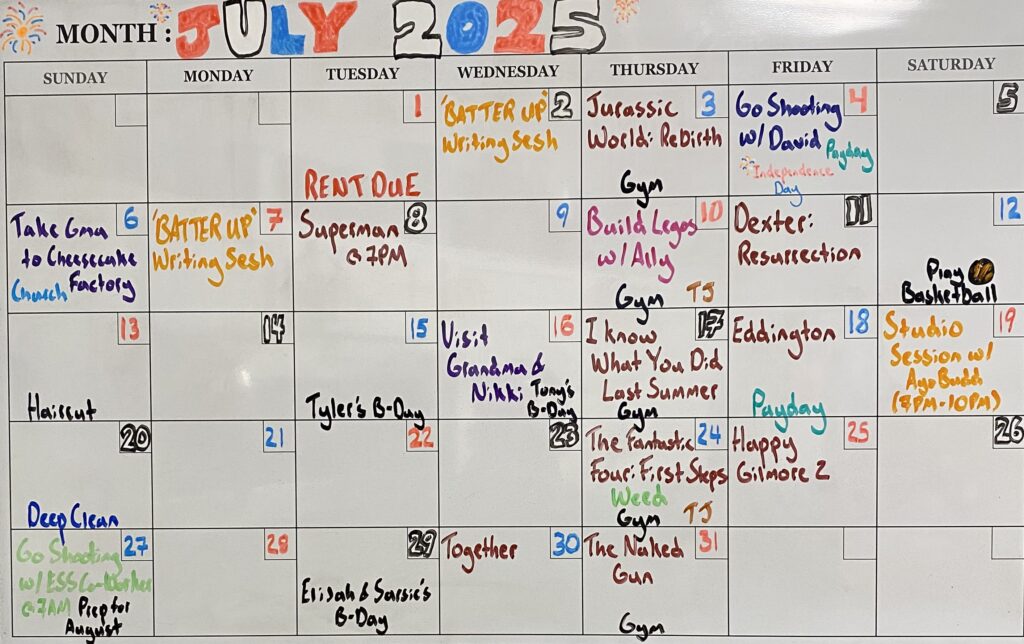 MONTH: JULY 2025
SUNDAY MONDAY TUESDAY WEDNESDAY THURSDAY FRIDAY SATURDAY
1
RENT DUE
2
'BATTER UP'
Writing Sesh
3
Jurassic
World: ReBirth
Gym
4
Go Shooting
w/ David
Payday
Independence
Day
5
6
Take Gma
to Cheesecake
Factory
Church
7
'BATTER UP'
Writing Sesh
8
Superman
@ 7PM
9
10
Build Legos
w/ Ally
Gym TJ
11
Dexter:
Resurrection
12
Play
Basketball
13
Haircut
14
15
Tyler's B-Day
16
Visit
Grandma &
Nikki
Tony's
B-Day
17
I know
What You Did
Last Summer
Gym
18
Eddington
Payday
19
Studio
Session w/
Ayo Budd
(8PM-10PM)
20
Deep Clean
21
22
23
24
The Fantastic
Four: First Steps
Weed
Gym TJ
25
Happy
Gilmore 2
26
27
Go Shooting
w/ ESS Co-Worker
@ 7AM
Prep for
August
28
29
Elijah & Sarsie's
B-Day
30
Together
31
The Naked
Gun
Gym